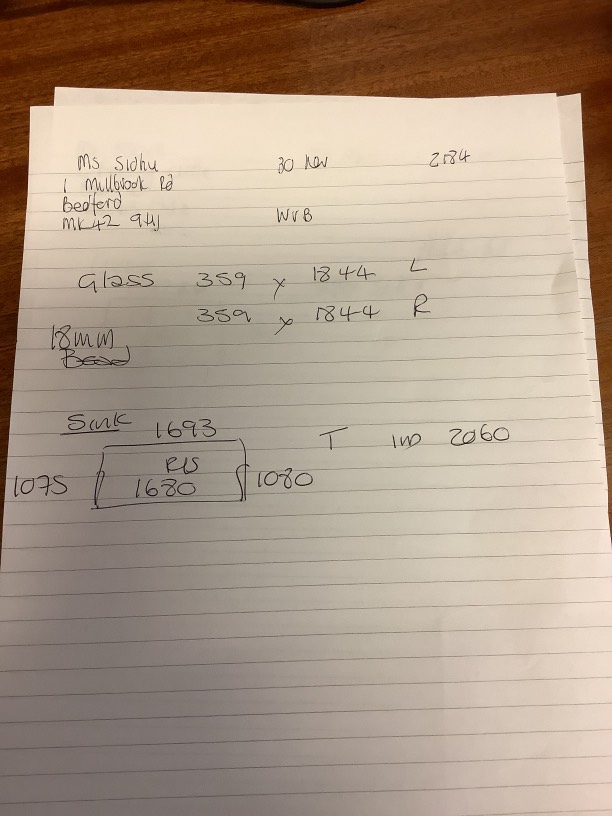 Ms Sidhu 30 Nov 2584
1 Millbrook Rd
Bedford
MK42 9HJ WVB
Glass 359 x 1844 L
359 x 1844 R
18mm
Bead
1693
T 2060
1075 1680 1080